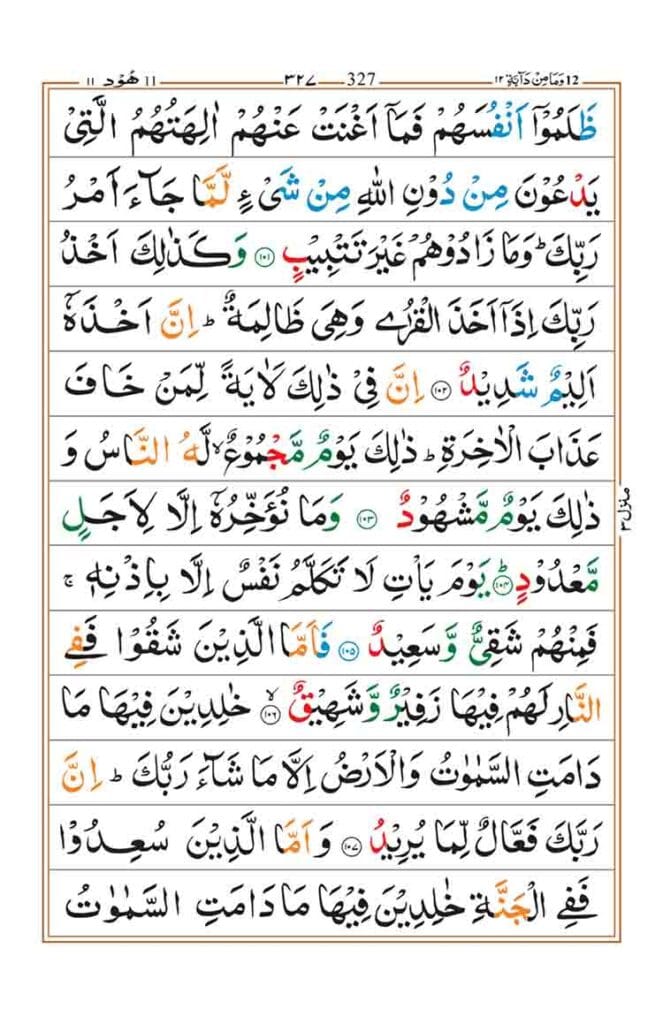 12 وَمَا مِنْ دَآبَّةٍ ١٢ 327 ٣٢٧ 11 هُوْد ١١
ظَلَمُوْٓا اَنْفُسَهُمْ فَمَآ اَغْنَتْ عَنْهُمْ اٰلِهَتُهُمُ الَّتِىْ
يَدْعُوْنَ مِنْ دُوْنِ اللّٰهِ مِنْ شَىْءٍ لَّمَّا جَآءَ اَمْرُ
رَبِّكَ ؕ وَمَا زَادُوْهُمْ غَيْرَ تَتْبِيْبٍ ۝١٠١ وَكَذٰلِكَ اَخْذُ
رَبِّكَ اِذَآ اَخَذَ الْقُرٰى وَهِىَ ظَالِمَةٌ ؕ اِنَّ اَخْذَهٗٓ
اَلِيْمٌ شَدِيْدٌ ۝١٠٢ اِنَّ فِىْ ذٰلِكَ لَاٰيَةً لِّمَنْ خَافَ
عَذَابَ الْاٰخِرَةِ ؕ ذٰلِكَ يَوْمٌ مَّجْمُوْعٌ ۙ لَّهُ النَّاسُ وَ
ذٰلِكَ يَوْمٌ مَّشْهُوْدٌ ۝١٠٣ وَمَا نُؤَخِّرُهٗٓ اِلَّا لِاَجَلٍ
مَّعْدُوْدٍ ؕ ۝١٠٤ يَوْمَ يَاْتِ لَا تَكَلَّمُ نَفْسٌ اِلَّا بِاِذْنِهٖ ۚ
فَمِنْهُمْ شَقِىٌّ وَّسَعِيْدٌ ۝١٠٥ فَاَمَّا الَّذِيْنَ شَقُوْا فَفِى
النَّارِ لَهُمْ فِيْهَا زَفِيْرٌ وَّشَهِيْقٌ ۙ ۝١٠٦ خٰلِدِيْنَ فِيْهَا مَا
دَامَتِ السَّمٰوٰتُ وَالْاَرْضُ اِلَّا مَا شَآءَ رَبُّكَ ؕ اِنَّ
رَبَّكَ فَعَّالٌ لِّمَا يُرِيْدُ ۝١٠٧ وَاَمَّا الَّذِيْنَ سُعِدُوْا
فَفِى الْجَنَّةِ خٰلِدِيْنَ فِيْهَا مَا دَامَتِ السَّمٰوٰتُ
منزل ٣